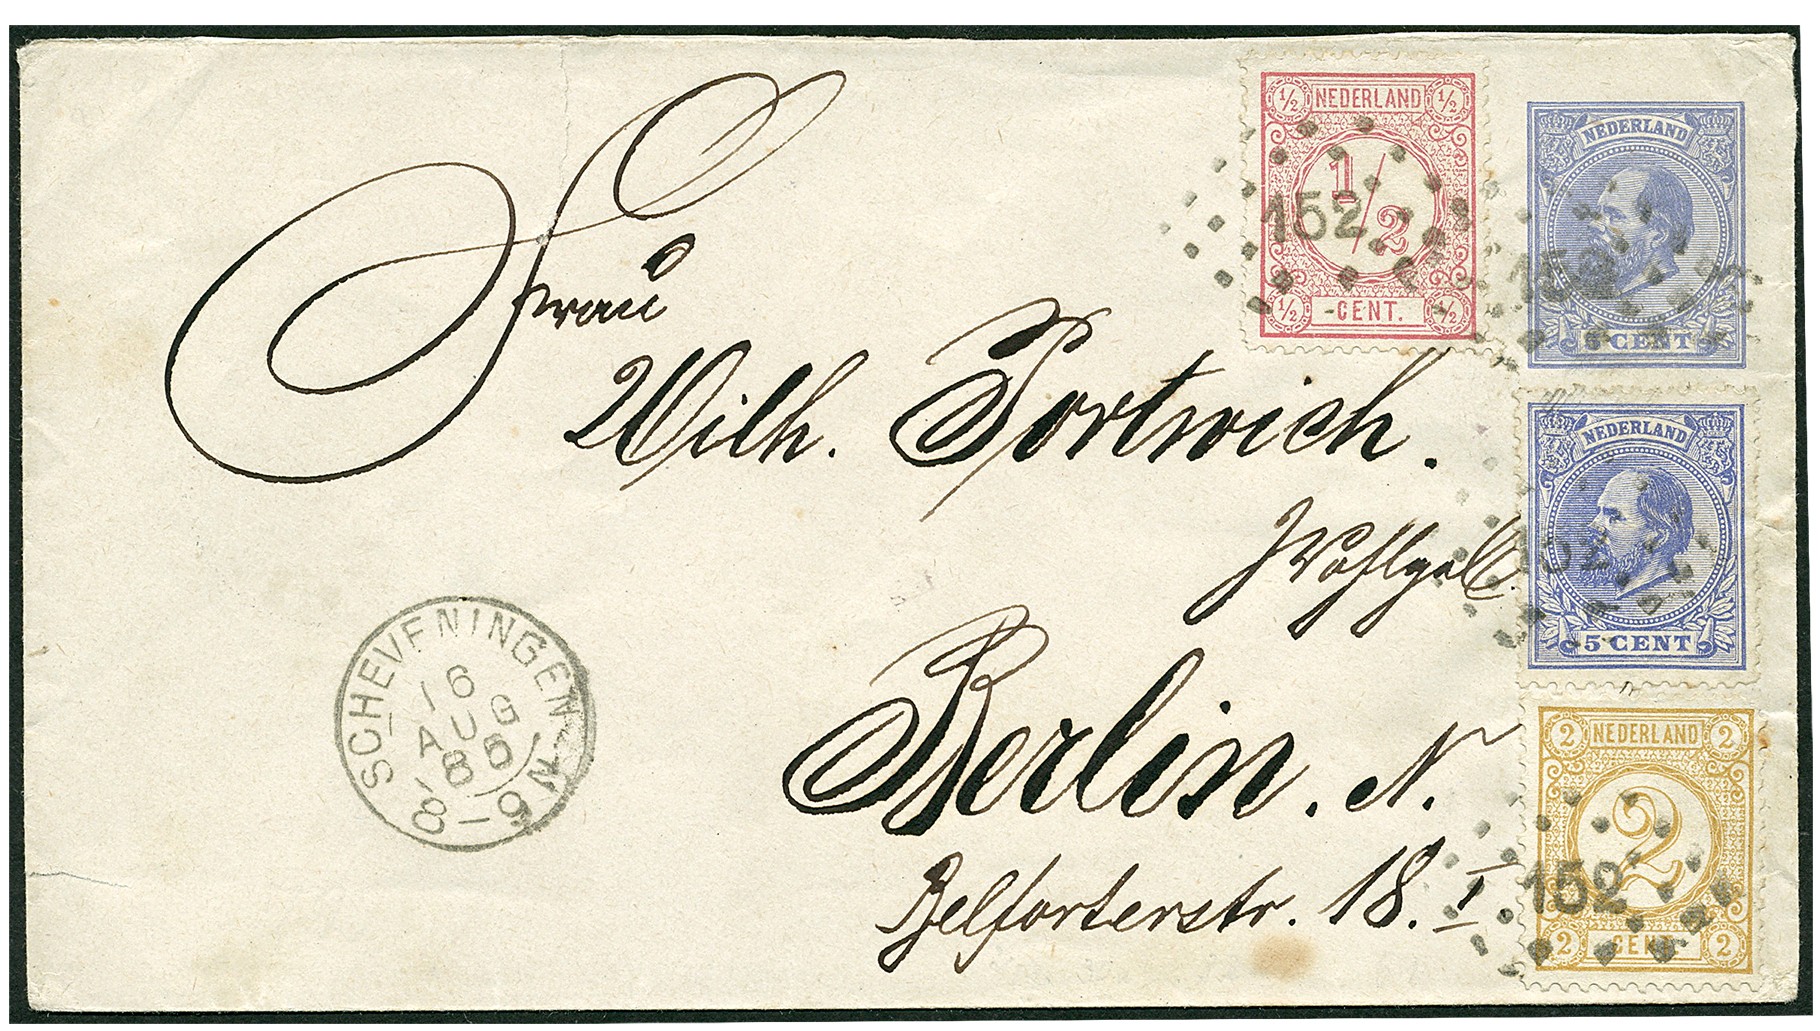 ½ NEDERLAND ½
1/2
½ CENT. ½
152
NEDERLAND
5 CENT
152
NEDERLAND
5 CENT
152
2 NEDERLAND 2
2
2 CENT 2
152
Frau
Wilh. Portwich.
Wohlgeb.
Berlin. N.
Belforterstr. 18. I.
SCHEVENINGEN
16
AUG
86
8-9 N